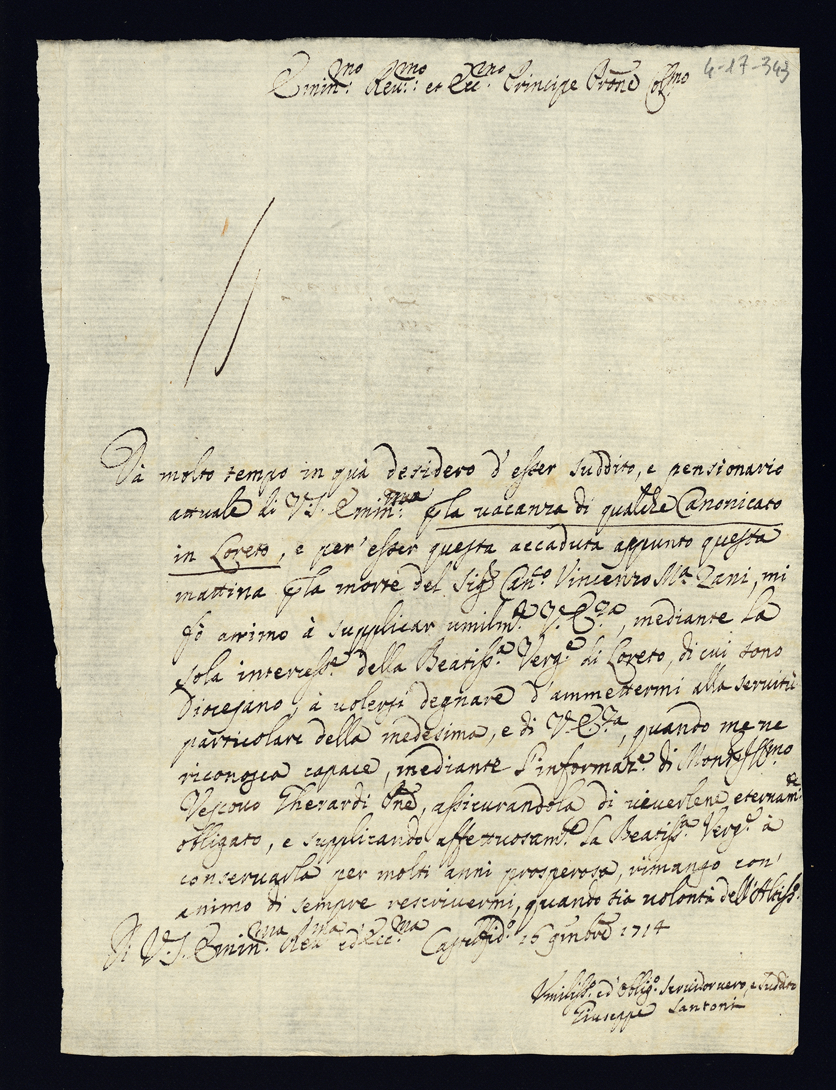 Emin.mo Rev.mo et Ecc.mo Principe Prone Col.mo
4-17-343
Dà molto tempo in quà desidero d'esser suddito, e pensionario
attuale di V.S. Emin.ma p la vacanza di qualche Canonicato
in Loreto, e per esser questa accaduta appunto questa
mattina p la morte del Sig.r Can.co Vincenzo M.a Zani, mi
fò animo à supplicar umilm.te V.E.za, mediante la
sola intercess.e della Beatiss.a Verg.e di Loreto, di cui sono
Diocesano, à volersi degnare d'ammettermi alla servitù
particolare della medesima, e di V.E.za, quando me ne
riconosca capace, mediante l'informaz.e di Mons.r Ill.mo
Vescovo Gherardi One, assicurandola di viverlene eternam.te
obligato, e supplicando affettuosam.te la Beatiss.a Verg.e à
conservarla per molti anni prosperosa, rimango con
animo di sempre rescrivermi, quando sia volontà dell'Altiss.o
Di V.S. Emin.ma Rev.ma ed Ecc.ma 16 9mbre 1714
Umiliss.o ed Oblig.o servidor vero, e suddito
Giuseppe Santoni